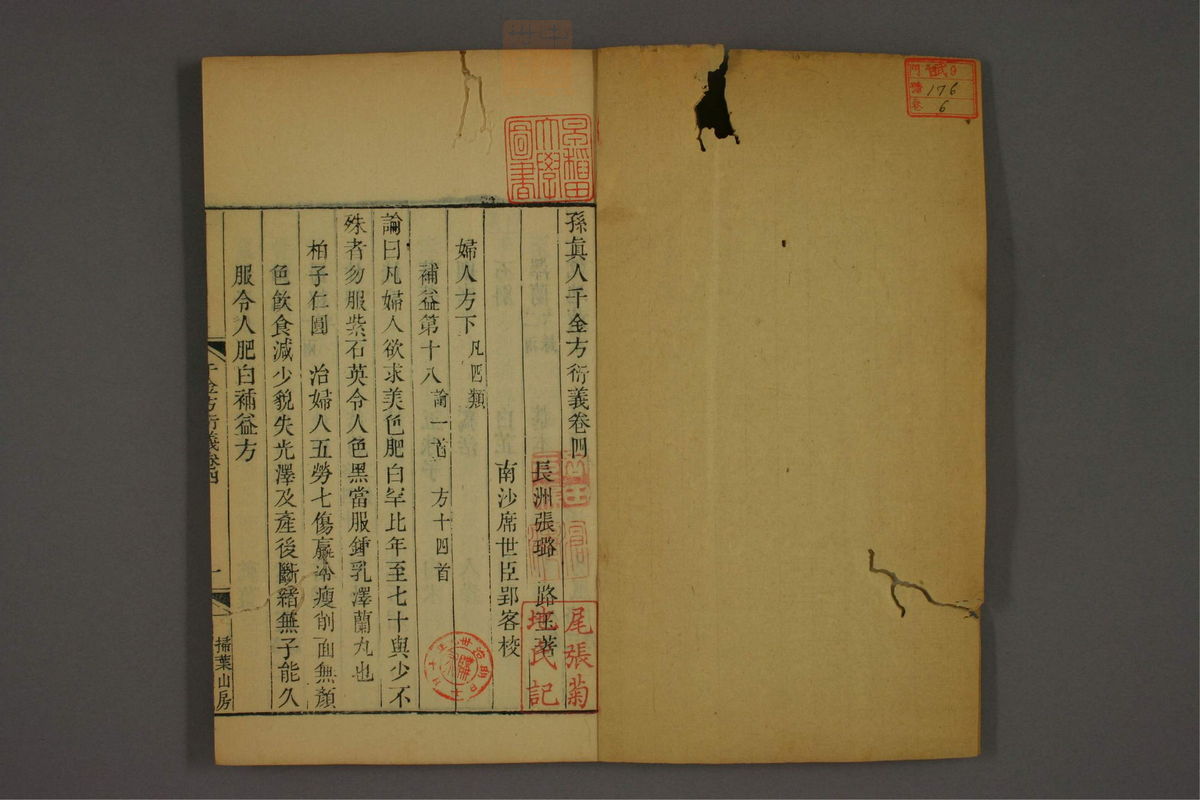 孫眞人千金方衍義卷四
長洲張璐 路玉著
南沙席世臣郢客校
婦人方下 凡四類
補益第十八 論一首 方十四首
論曰凡婦人欲求美色肥白罕比年至七十與少不
殊者勿服紫石英令人色黑當服鍾乳澤蘭丸也
柏子仁圓 治婦人五勞七傷羸冷瘦削面無顏
色飲食減少貌失光澤及產後斷緒無子能久
服令人肥白補益方
千金方衍義卷四
一
掃葉山房
早稻田
大學
圖書
尾張菊
地民記
門 9
號 176
卷 6